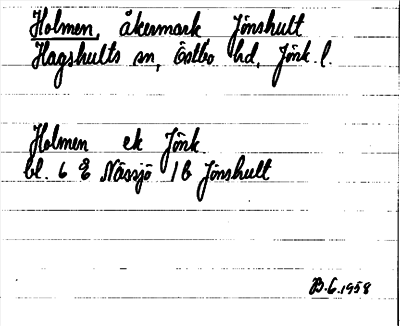 Holmen, åkermark Jönshult
Hagshults sn, Östbo hd, Jönk. l.
Holmen ek Jönk.
bl. 6 E Nässjö 1b Jönshult
B.G. 1958